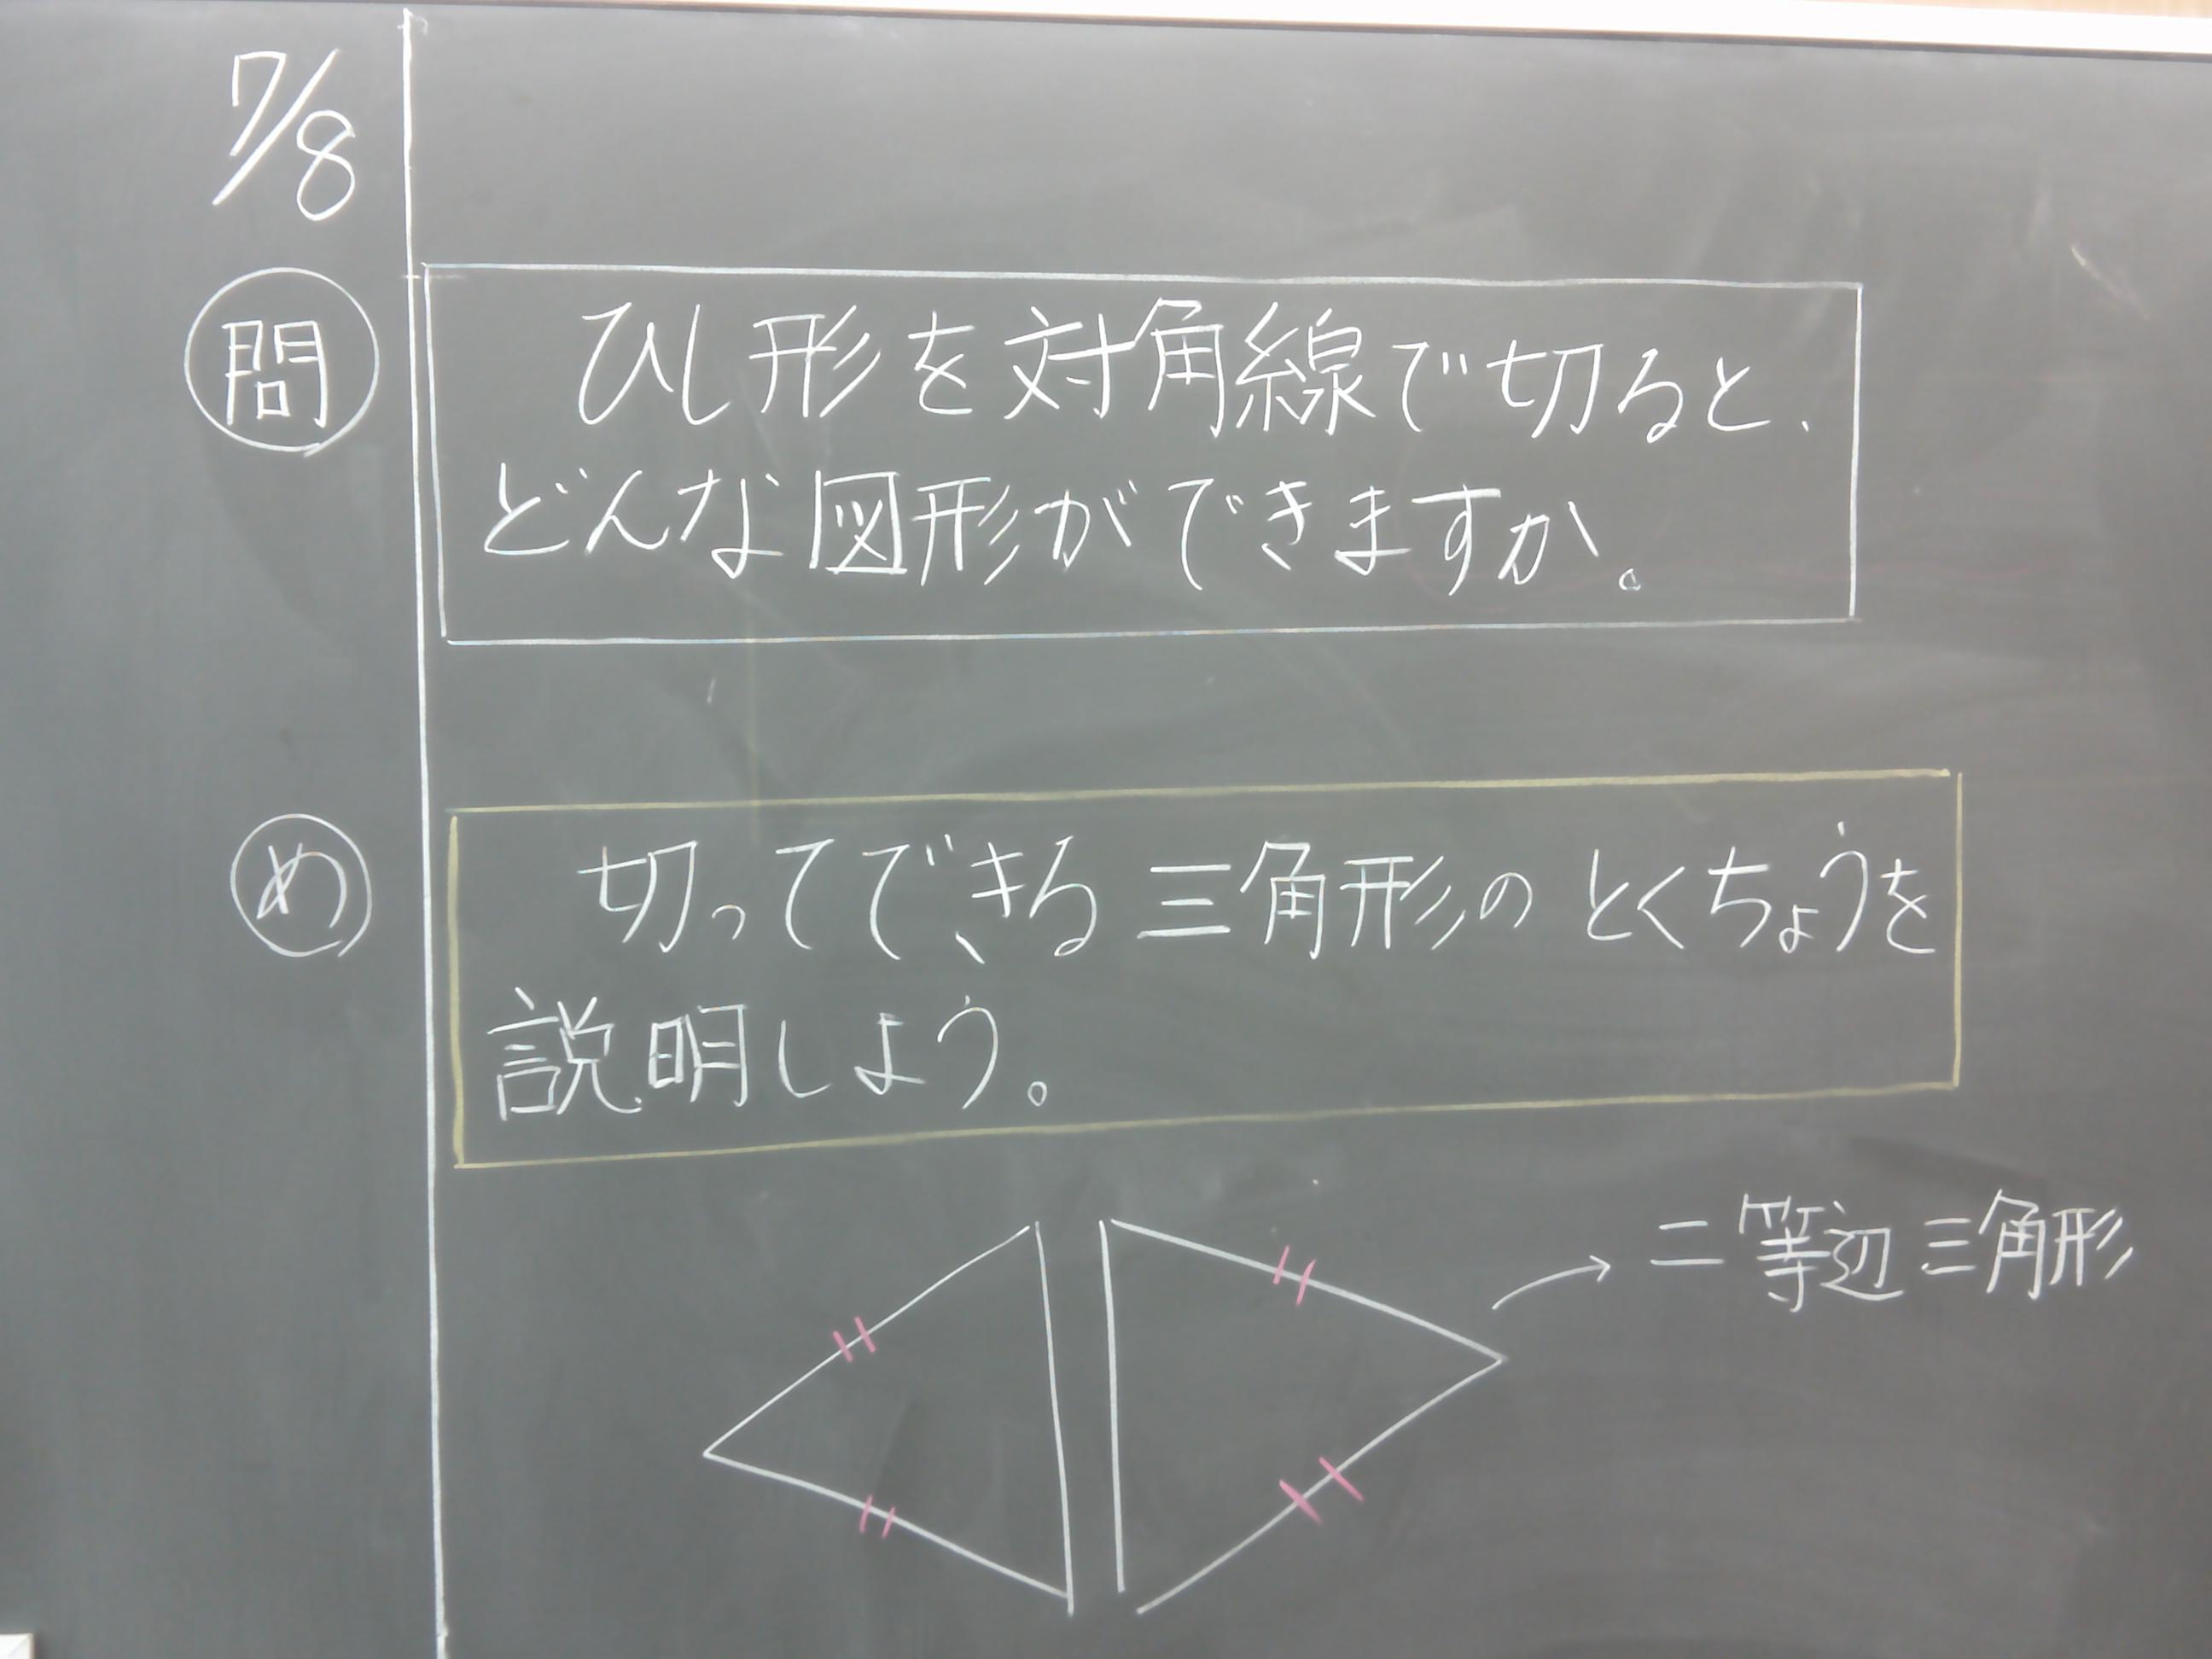 7/8
問
ひし形を対角線で切ると、
どんな図形ができますか。
め
切ってできる三角形のとくちょうを
説明しよう。
二等辺三角形